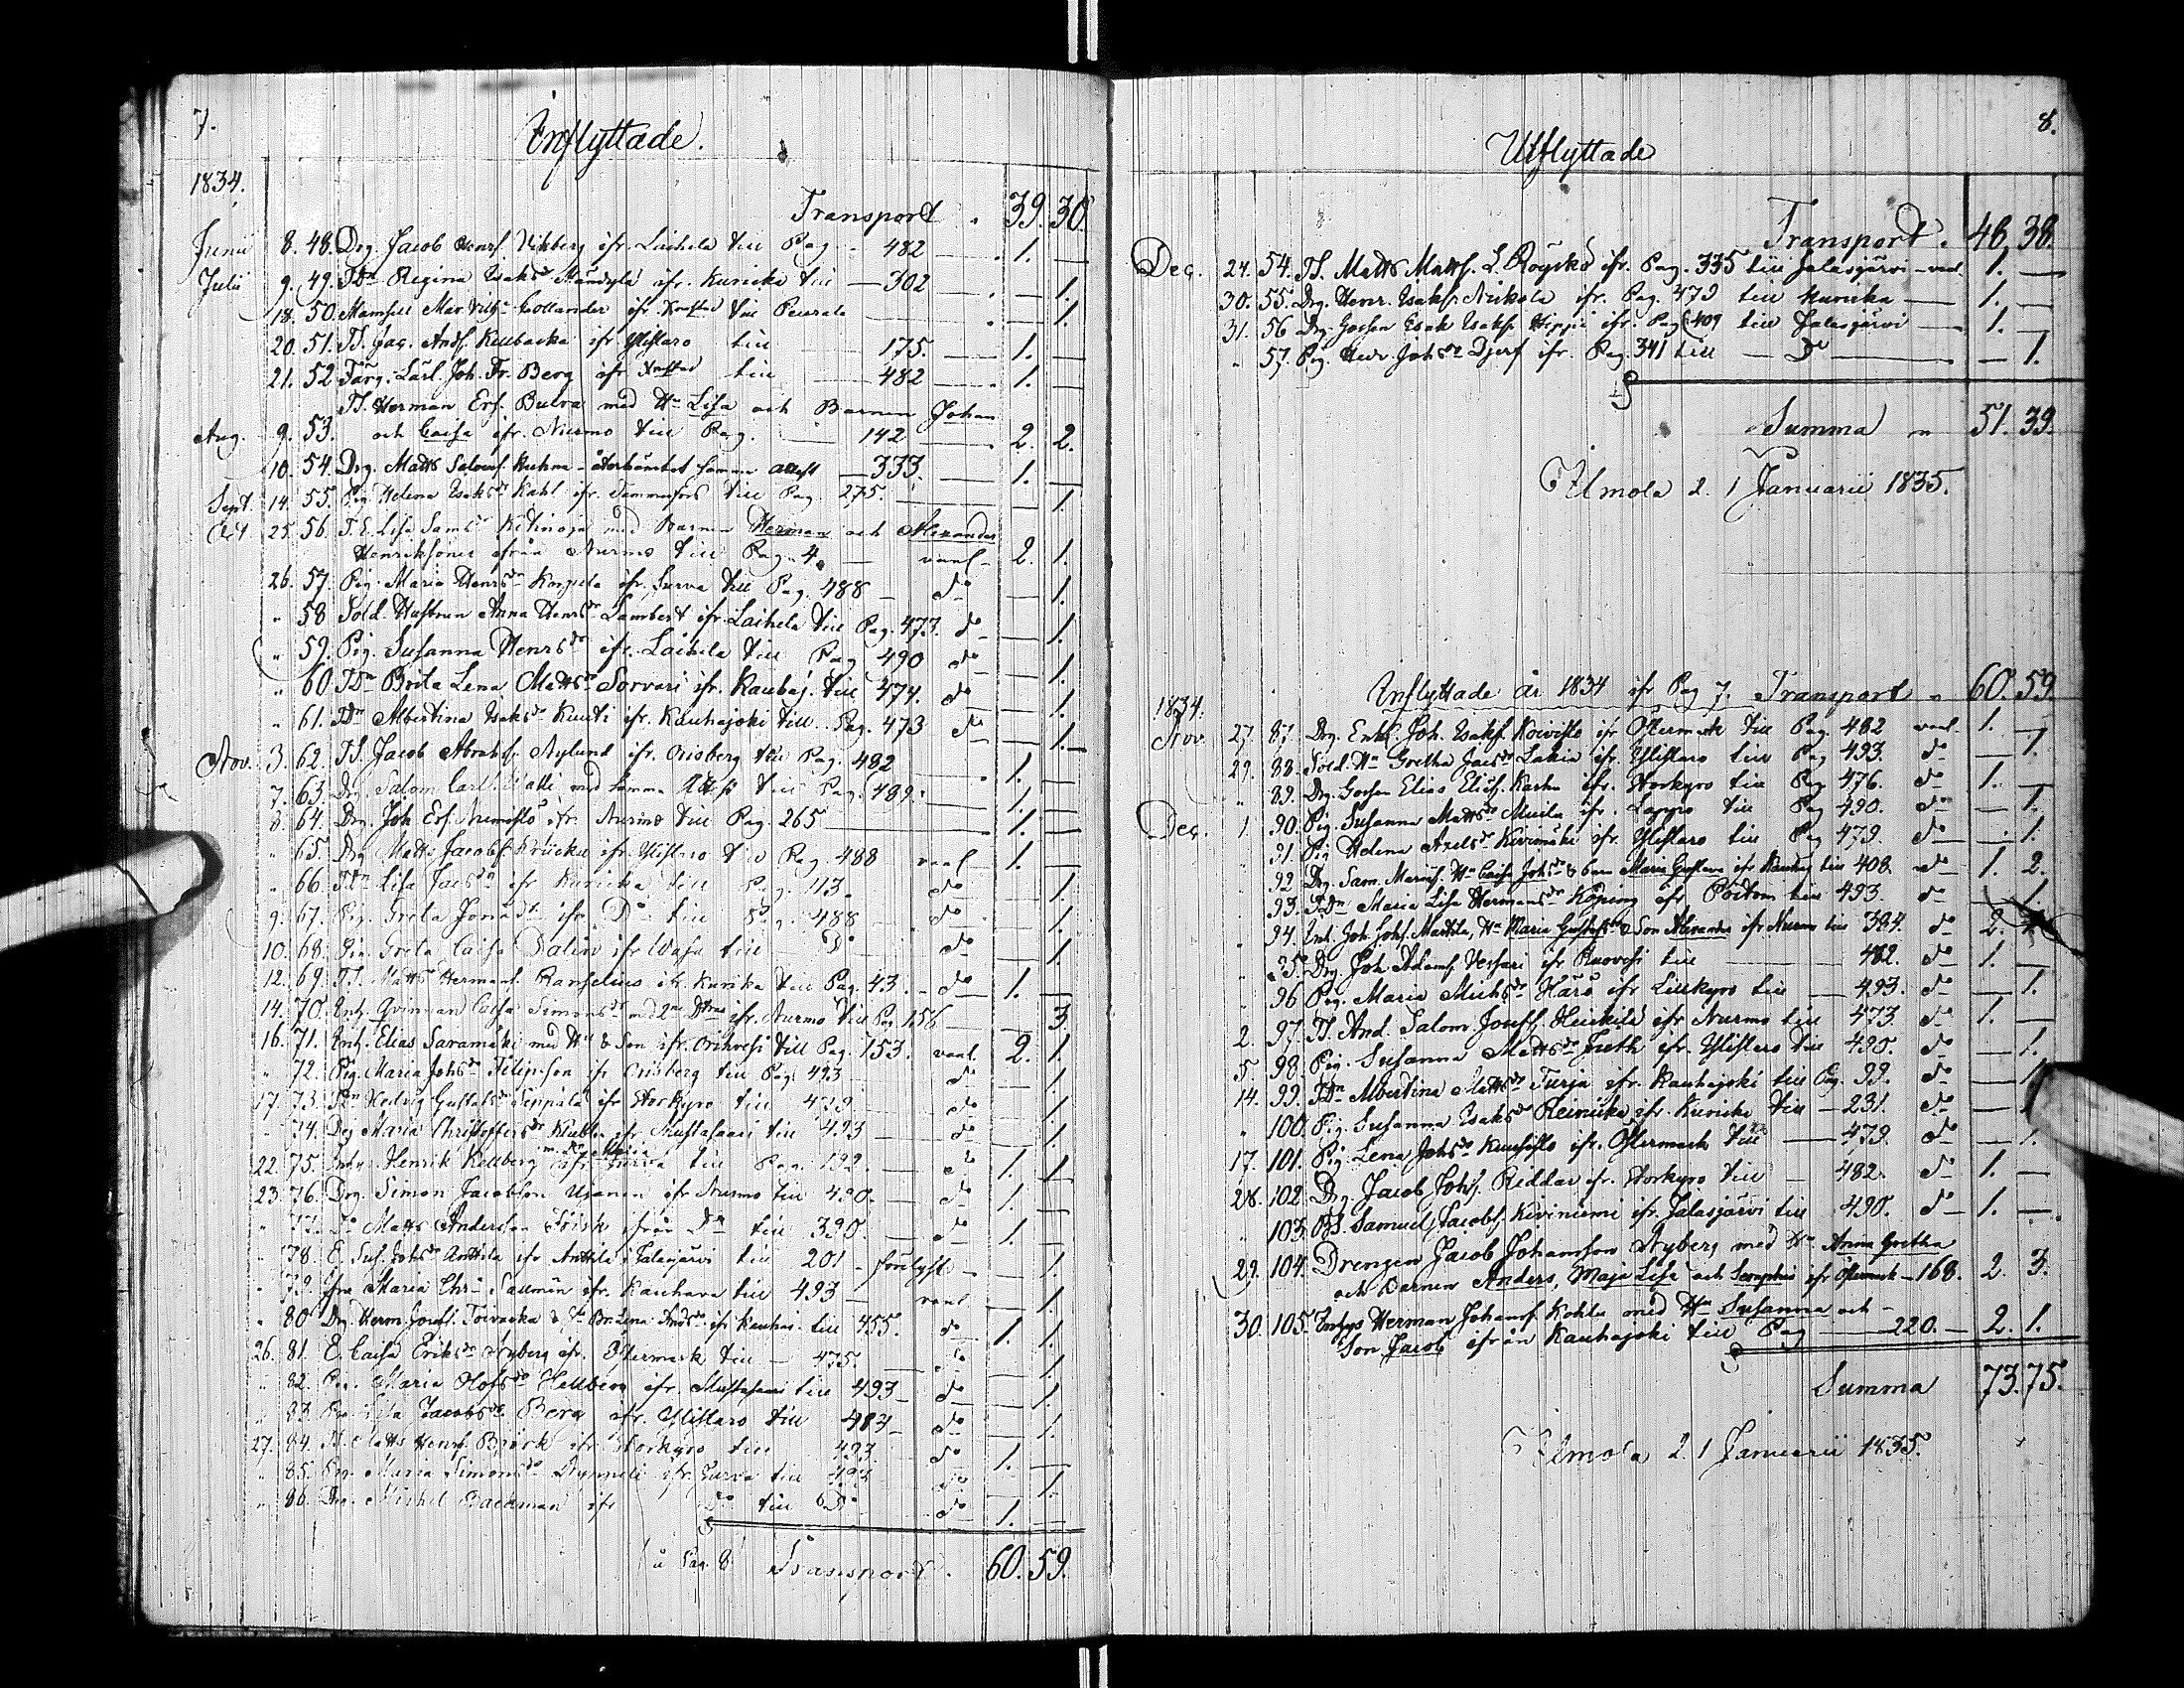 7.
Inflyttade.
1834.
Transport . 39. 30.
Junii 8. 48. Drg. Jacob Henrs. Vikberg ifr. Laihela till Pag. - 482 1. —
Julii 9. 49. Tdr Regina Isaksdr Mändylä ifr. Kuricka till — 302 — 1.
18. 50. Mamsell Mar. Vilh. Collander ifr. Xnestad till Peurala — 1.
20. 51. TS. Jac. Ands. Kuubacka ifr Ylistaro till 175. 1. —
21. 52 Färg. Lärl. Joh. Fr. Berg ifr Xnestad till 482 1. —
TS. Herman Ers. Bulva med Hu Lisa och Barnen Johan
Aug. 9. 53. och Caisa ifr. Nurmo till Pag. 142 2. 2.
10. 54. Drg. Matts Salomons. Kuhna - återkommit samma attest 333. 1. —
Sept. 14. 55. Pig. Helena Isaksdr Kahl ifr. Tammerfors till Pag. 275. — 1.
Oct 25. 56. T.E. Lisa Samsdr Kitinoja med Barnen Herman och Alexander
Henrikssöner ifrån Nurmo till Pag. 4. vanl. 2. 1.
26. 57. Pig. Maria Henrsdr Korpela ifr. Jurva till Pag. 488 do — 1.
" 58 Sold. Hustrun Anna Henrsdr Lambert ifr. Laihela till Pag. 473. do — 1.
" 59. Pig. Susanna Henrsdr ifr. Laihela till Pag 490 do — 1.
" 60 Tdr Brita Lena Mattsdr Sorvari ifr. Kauhaj. till 474. do — 1.
" 61. Tdr Albertina Isaksdr Kuuti ifr. Kauhajoki till Pag. 473 do — 1.
Nov. 3. 62. TS. Jacob Abrahs. Nylund ifr. Orisberg till Pag. 482 1. —
7. 63. Drg. Salom. Carls. Matti med samma Attest till Pag. 489. 1. —
8. 64. Drg. Joh Ers. Nurmislo ifr. Nurmo till Pag. 265 1. —
" 65. Drg Matts Jacobs. Krücku ifr. Ylistaro till Pag. 488 vanl 1. —
" 66. Tdr Lisa Jacsdr ifr Kuricka till Pag. 43. do — 1.
9. 67. Pig. Greta Jonasdr ifr. Do till 488 do — 1.
10. 68. Pig. Greta Caisa Dalin ifr Wasa till Do do — 1.
12. 69. TS. Matts Hermans. Ranselius ifr. Kurika till Pag. 43. do 1. —
14. 70. Enk. Qvinnan Caisa Simonsdr med 2ne Dtrar ifr. Nurmo till Pag 156 — 3.
16. 71. Enh. Elias Saramäki med Hu & Son ifr. Orihvesi till Pag. 153. vanl. 2. 1.
" 72. Pig. Maria Johsdr Filipson ifr Orisberg till Pag. 493 do — 1.
17. 73. Tdr Hedvig Gustafsdr Seppälä ifr Storkyro till 479 do — 1.
" 74. Pig Maria Christoffersdr Kubbe ifr. Mustasaari till 493 do — 1.
m. Hu Maria
22. 75. Inhys Henrik Kellberg ifr Jurva till Pag. 192. do 1. 1
23. 76. Drg. Simon Jacobson Ujanen ifr Nurmo till 490. do 1. —
" 77. Do Matts Anderson Frisk ifrån Do till 390. do 1. —
" 78. E. Sus. Johsdr Anttila ifr Anttila i Jalasjärvi till 201 - förlyst — 1.
" 79. Maria Chr. Salmén ifr. Kauhava till 493 vanl — 1.
" 80 Drg. Herm. Josefs. Toivacka & Hu Br. Lena Andsdr ifr Kauhaj. till 455. do 1. 1.
26. 81. E. Caisa Eriksdr Nyberg ifr. Östermark till — 475. do — 1.
" 82. Pig. Maria Olofsdr Hellberg ifr. Mustasaari till 493 do — 1.
" 83. Pig. Lisa Jacobsdr Berg ifr. Ylistaro till 483 do — 1.
27. 84. TS. Matts Henrs. Björk ifr Storkyro till 493. do 1. —
" 85. Pig. Maria Simonsdr Nyppeli ifr. Jurva till 493 do — 1.
" 86. Drg. Michel Backman ifr Do till Do do 1. —
å Pag. 8 Transport . 60. 59.
8.
Utflyttade
Transport . 48. 38.
Dec. 24. 54. TS. Matts Matts. L. Röysko ifr. Pag. 335 till Jalasjärvi - vanl. 1. —
30. 55. Drg. Henr. Isaks. Nickola ifr. Pag. 473 till Kuricka 1. —
31. 56 Drg. Gossen Esak Isaks. Hippi ifr. Pag 409 till Jalasjärvi 1. —
" 57. Pig. Hedv. Johsdr Djerf ifr. Pag. 341 till — Do — 1.
Summa " 51. 39.
Ilmola d. 1 Januarii 1835.
Inflyttade år 1834 ifr Pag 7. Transport " 60. 59
1834.
Nov. 27. 87. Drg. Enkl. Joh. Isaks. Koivisto ifr Östermark till Pag. 482 vanl. 1. —
29. 88. Sold. Hu Gretha Jacsdr Lakia ifr Ylistaro till Pag 493. do — 1.
" 89. Drg. Gossen Elias Elias. Karhu ifr. Storkyro till Pag 476. do 1. —
Dec. 1. 90. Pig. Susanna Mattsdr Muila ifr. Lappo till Pag 490. do — 1.
" 91. Pig Helena Axelsdr Kivimäki ifr. Ylistaro till Pag 479. do — 1.
" 92. Drg. Sam. Marius. Hu Caisa Johsdr & barn Maria Gustava ifr Kauhaj till 408. do 1. 2.
93. Tdr Maria Lisa Hermansdr Köping ifr Pörtom till 493. do — 1.
" 94. Enh. Joh. Johs. Marttila, Hu Maria Gustafsdr & Son Alexander ifr Nurmo till 384. do 2. 1
" 95. Drg. Joh Adams. Vessari ifr Ruovesi till 482. do 1. —
" 96 Pig. Maria Michsdr Harö ifr Lillkyro till 493. do — 1.
2. 97. TS. And. Salom. Josefs. Heickilä ifr Nurmo till 473. do 1. —
5 98. Pig. Susanna Mattsdr Freth ifr. Ylistaro till 490. do — 1.
14. 99. Tdr Albertina Mattsdr Turja ifr. Kauhajoki till Pag. 99. do — 1
" 100. Pig. Susanna Isaksdr Reinicka ifr. Kuricka till — 231. do — 1
17. 101. Pig Lena Johsdr Kuusisto ifr. Östermark till 479. do — 1.
28. 102. Drg. Jacob Johs. Riddar ifr. Storkyro till 482. do 1. —
" 103. BS. Samuel Jacobs. Kiviniemi ifr. Jalasjärvi till 490. do 1. —
29. 104. Drengen Jacob Johansson Nyberg med Hu Anna Gretha
och Barnen Anders, Maja Lisa och Seraphia ifr Östermark — 168. 2. 3.
30. 105. Inhys Herman Johans. Kohla med Hu Susanna och
Son Jacob ifrån Kauhajoki till Pag 220. 2. 1.
Summa 73. 75.
Ilmola d. 1 Januarii 1835.